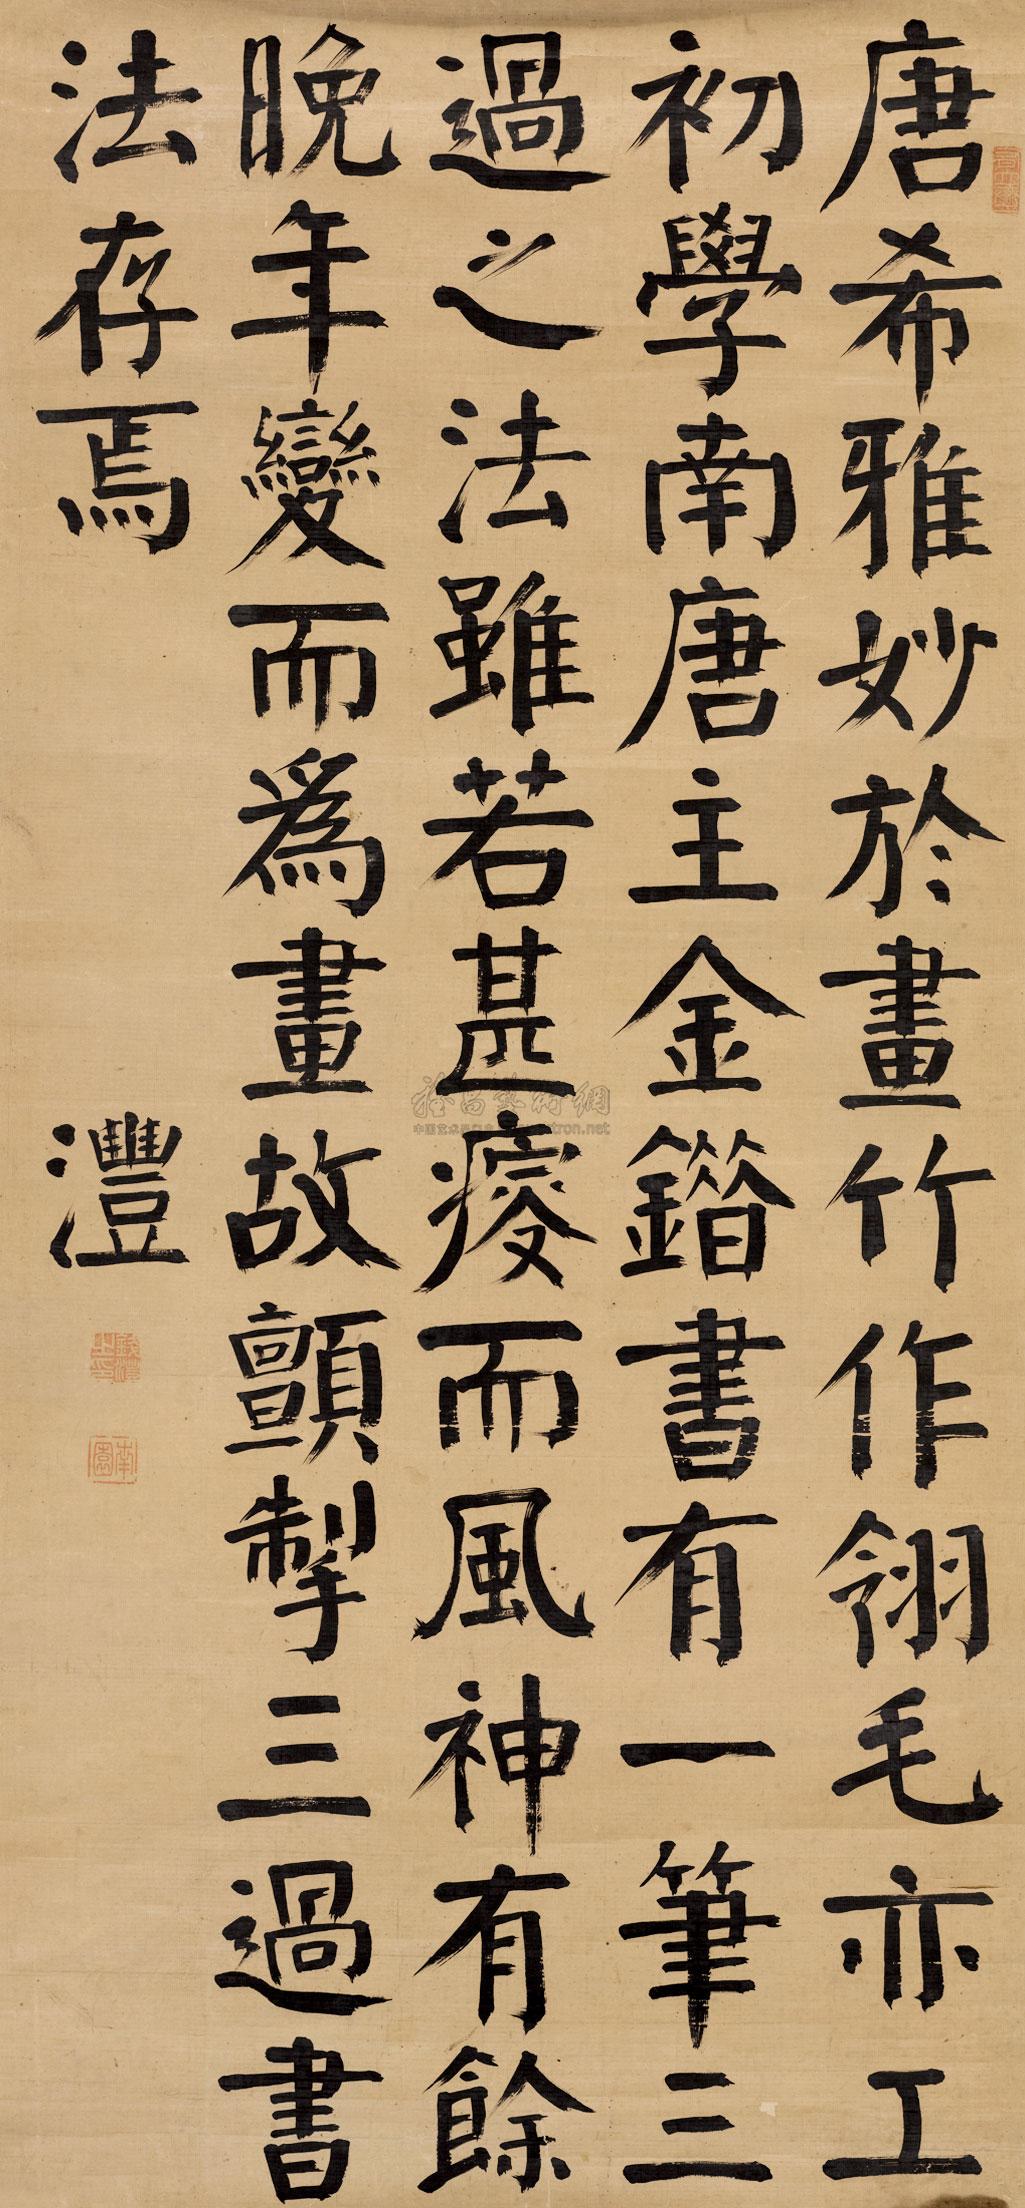 唐希雅妙於畫竹作翎毛亦工
初學南唐主金錯書有一筆三
過之法雖若甚瘦而風神有餘
晚年變而為畫故顫掣三過書
法存焉
灃
錢灃之印
南園